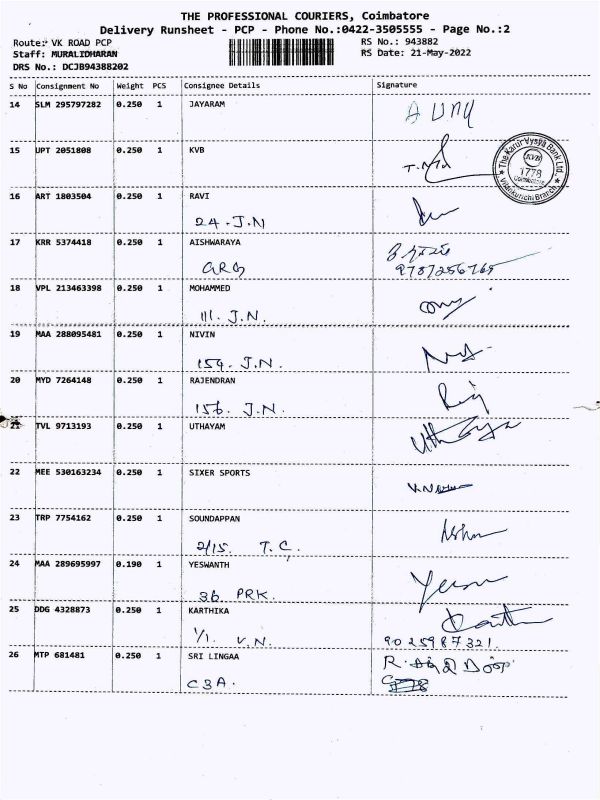 THE PROFESSIONAL COURIERS, Coimbatore
Delivery Runsheet - PCP - Phone No.:0422-3505555 - Page No.:2
Route: VK ROAD PCP
RS No.: 943882
Staff: MURALIDHARAN
RS Date: 21-May-2022
DRS No.: DCJB94388202
S No Consignment No Weight PCS Consignee Details Signature
14 SLM 295797282 0.250 1 JAYARAM
15 UPT 2051808 0.250 1 KVB
The Karur Vysya Bank Ltd.
KVB
1778
Coimbatore
Vilankurichi Branch
16 ART 1803504 0.250 1 RAVI
24. J.N
17 KRR 5374418 0.250 1 AISHWARAYA
18 VPL 213463398 0.250 1 MOHAMMED
111. J.N.
19 MAA 288095481 0.250 1 NIVIN
159. J.N.
20 MYD 7264148 0.250 1 RAJENDRAN
156. J.N.
21 TVL 9713193 0.250 1 UTHAYAM
22 MEE 530163234 0.250 1 SIXER SPORTS
23 TRP 7754162 0.250 1 SOUNDAPPAN
2/15. T.C.
24 MAA 289695997 0.190 1 YESWANTH
36 PRK.
25 DDG 4328873 0.250 1 KARTHIKA
1/1. V.N.
9025987321.
26 MTP 681481 0.250 1 SRI LINGAA
C3A.